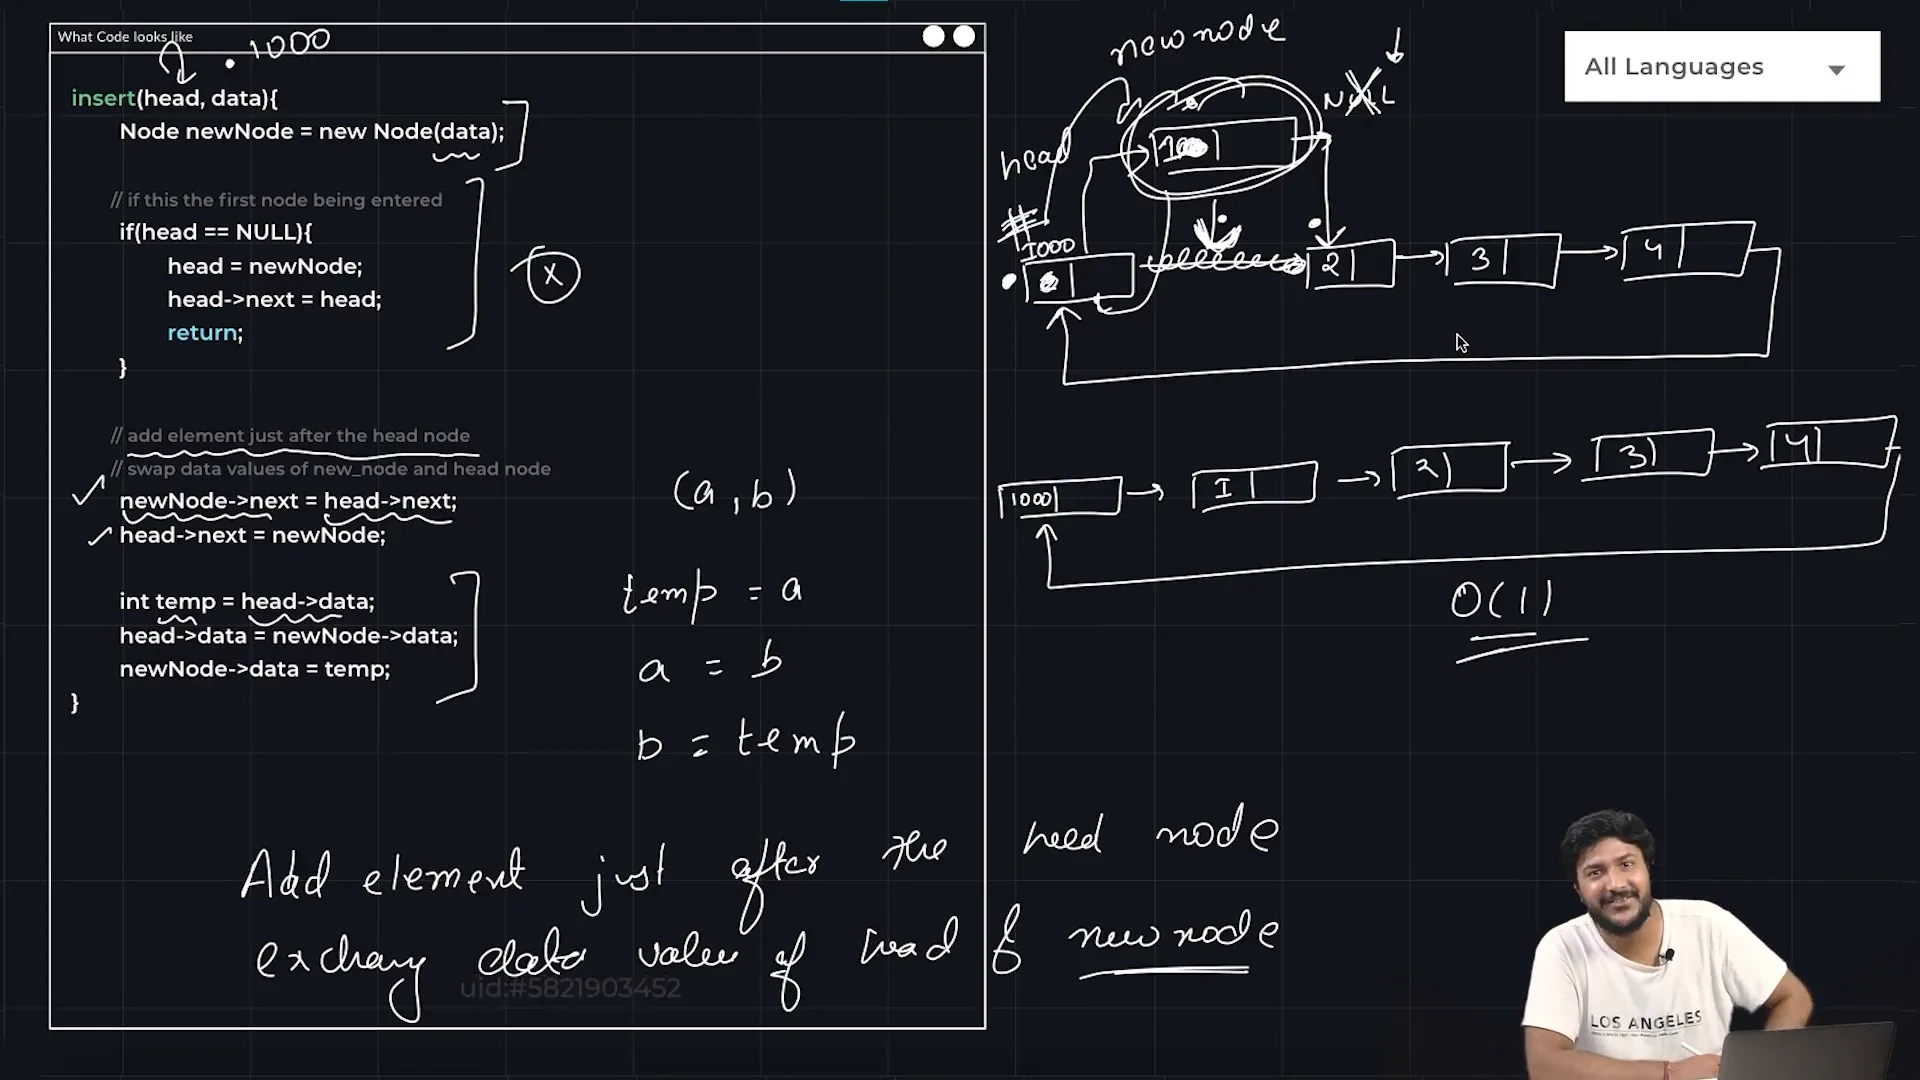 What Code looks like
1000
insert(head, data){
Node newNode = new Node(data);
// if this the first node being entered
if(head == NULL){
head = newNode;
head->next = head;
return;
}
X
// add element just after the head node
// swap data values of new_node and head node
newNode->next = head->next;
head->next = newNode;
int temp = head->data;
head->data = newNode->data;
newNode->data = temp;
}
(a, b)
temp = a
a = b
b = temp
Add element just after the head node
exchang data value of head & new node
uid:#5821903452
All Languages
new node
NULL
head
1000
2 3 4
1000 1 2 3 4
O(1)
LOS ANGELES